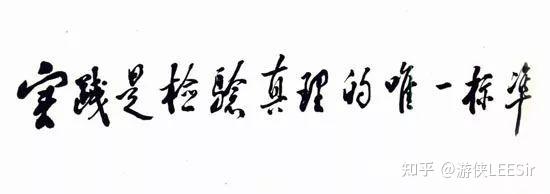 实践是检验真理的唯一标准
知乎 @游侠LEESir